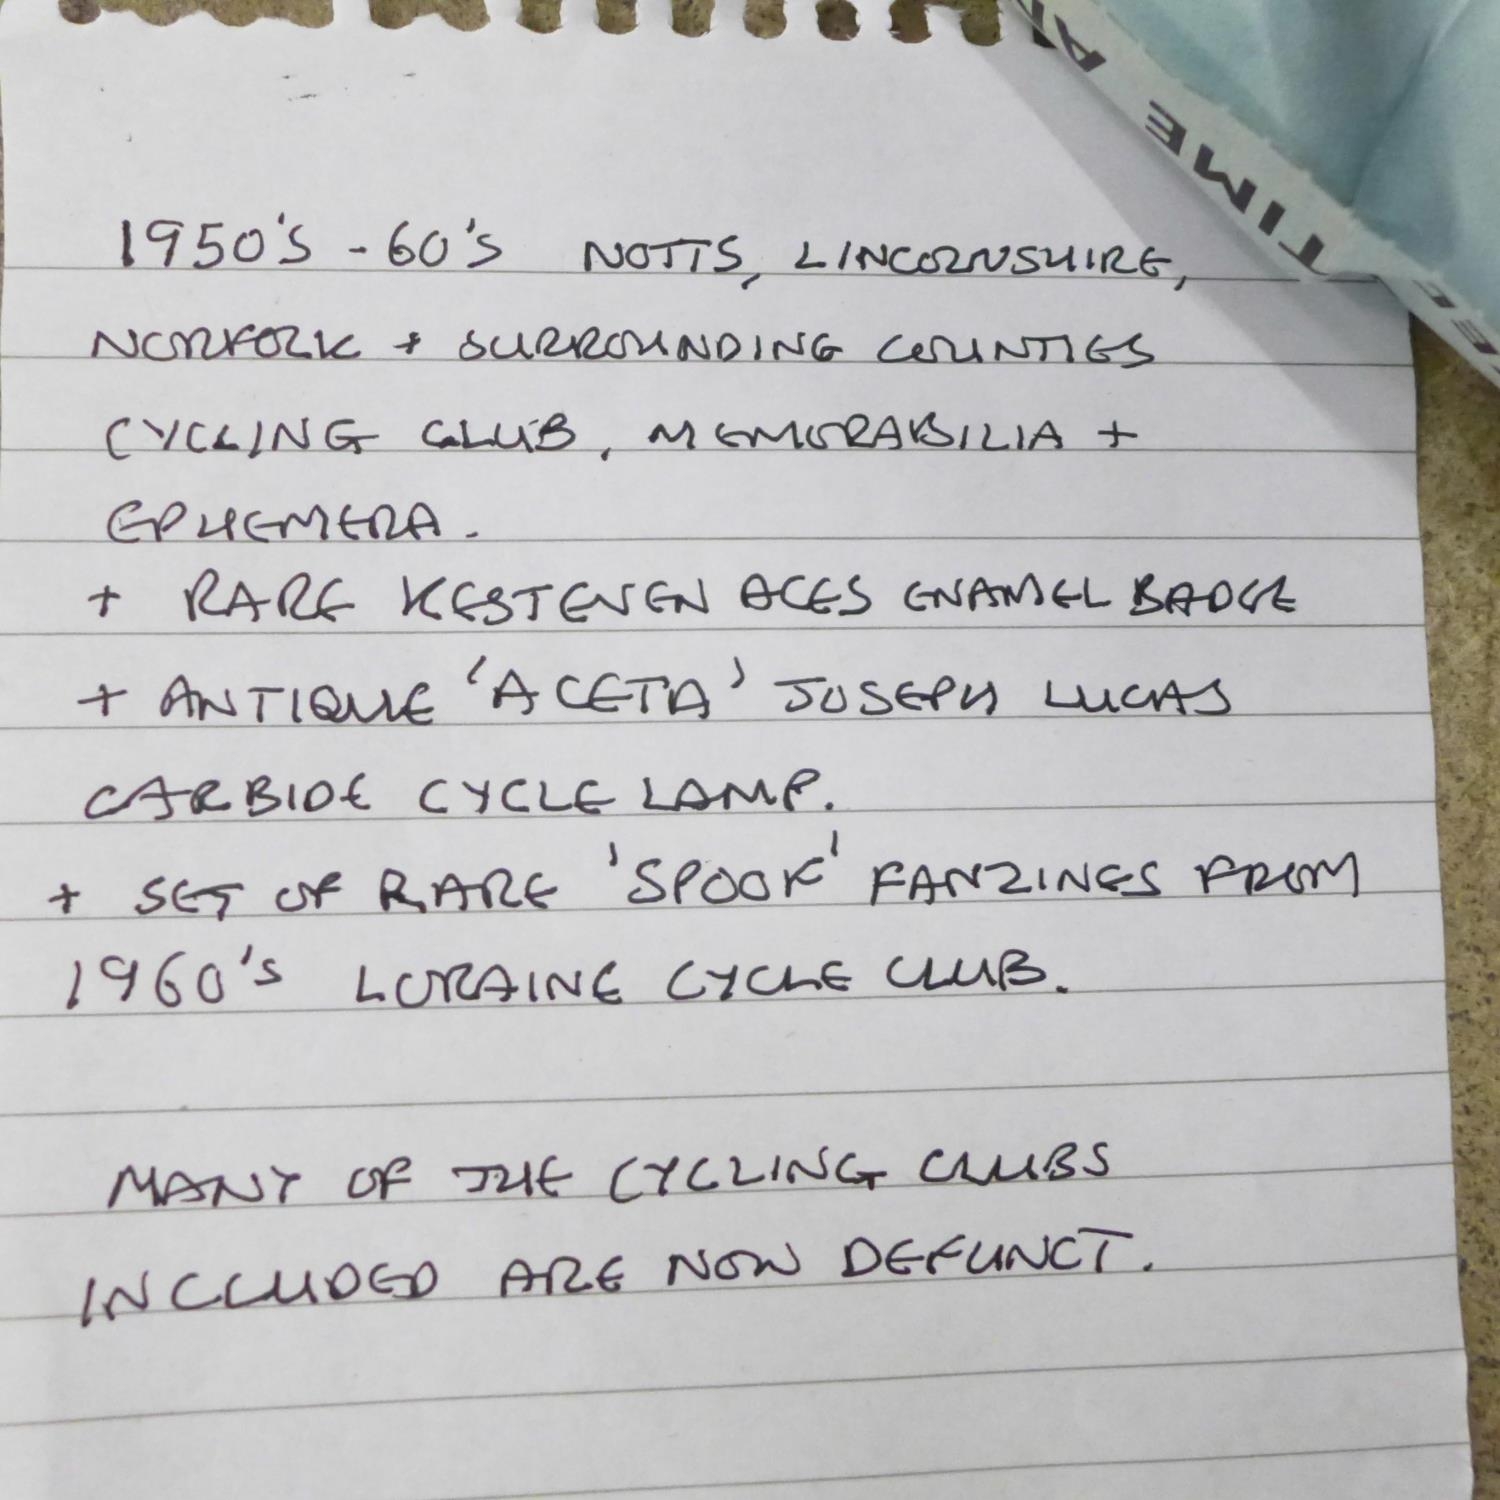 1950's - 60's NOTTS, LINCOLNSHIRE,
NORFOLK + SURROUNDING COUNTIES
CYCLING CLUB, MEMORABILIA +
EPHEMERA.
+ RARE KESTEVEN ACES ENAMEL BADGE
+ ANTIQUE 'ACETA' JOSEPH LUCAS
CARBIDE CYCLE LAMP.
+ SET OF RARE 'SPOOK' FANZINES FROM
1960's LORAINE CYCLE CLUB.
MANY OF THE CYCLING CLUBS
INCLUDED ARE NOW DEFUNCT.
TIME